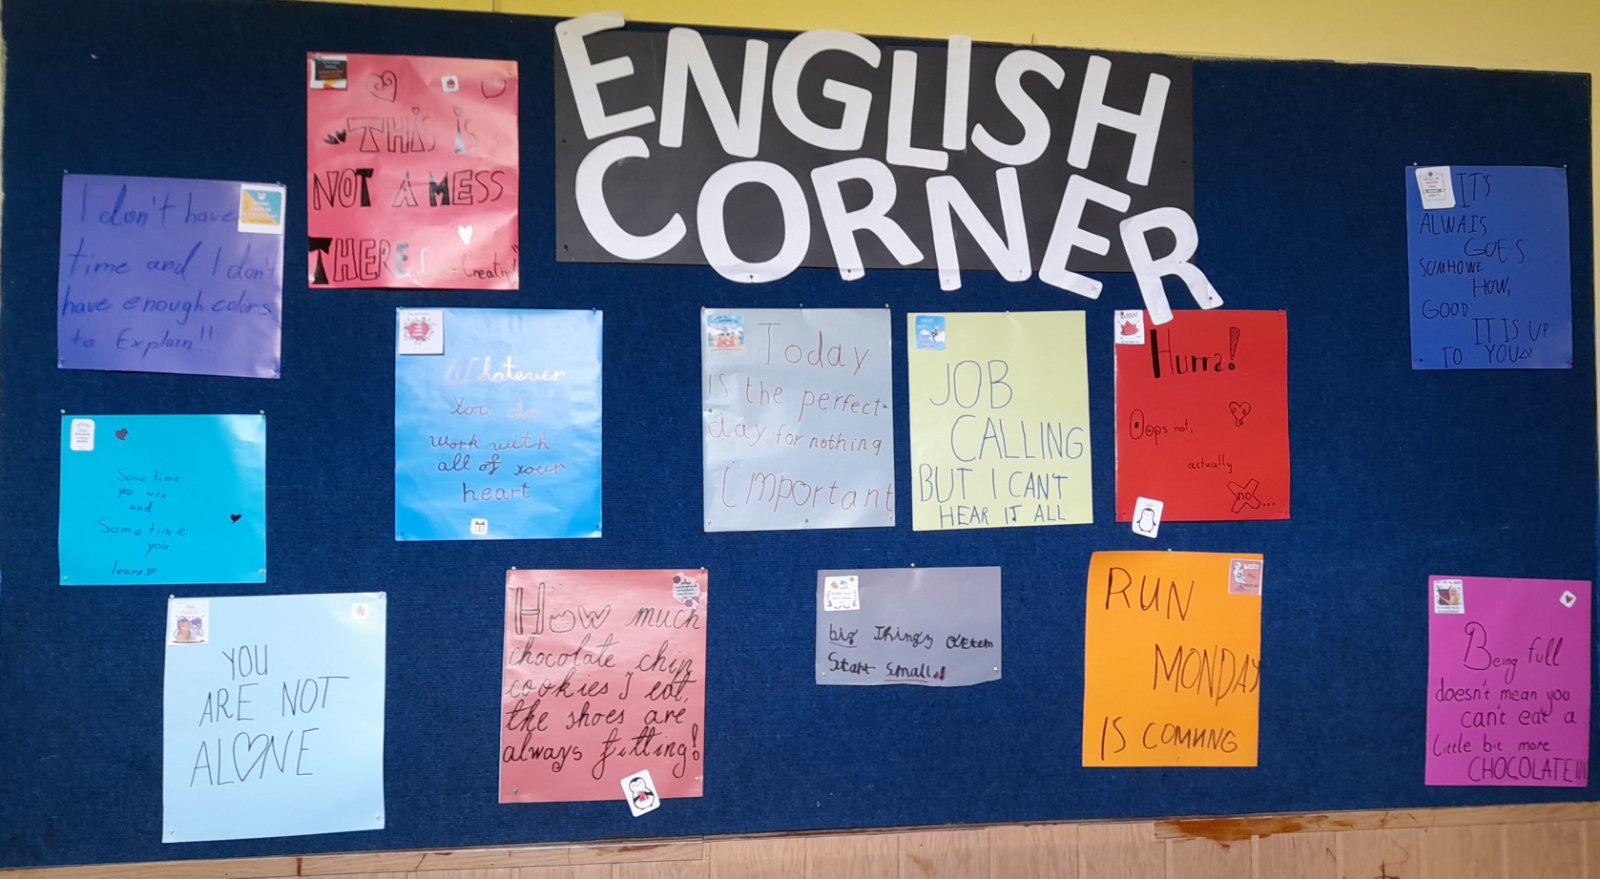 ENGLISH
CORNER
THIS iS
NOT A MESS
THERE
I don't have
time and I don't
have enough colors
to Explain!!
IT'S
ALWAIS
GOES
SOMHOWE
HOW,
GOOD
IT IS UP
TO YOU
Whatever
You do
work with
all of your
heart
Today
is the perfect
day for nothing
important
JOB
CALLING
BUT I CAN'T
HEAR IT ALL
Hurra!
Oops not,
actually
no...
Some time
you win
and
Some time
you
learn
YOU
ARE NOT
ALONE
How much
chocolate chip
cookies I eat,
the shoes are
always fitting!
big Things often
Start small!
RUN
MONDAY
IS COMING
Being full
doesn't mean you
can't eat a
little bit more
CHOCOLATE!!!!